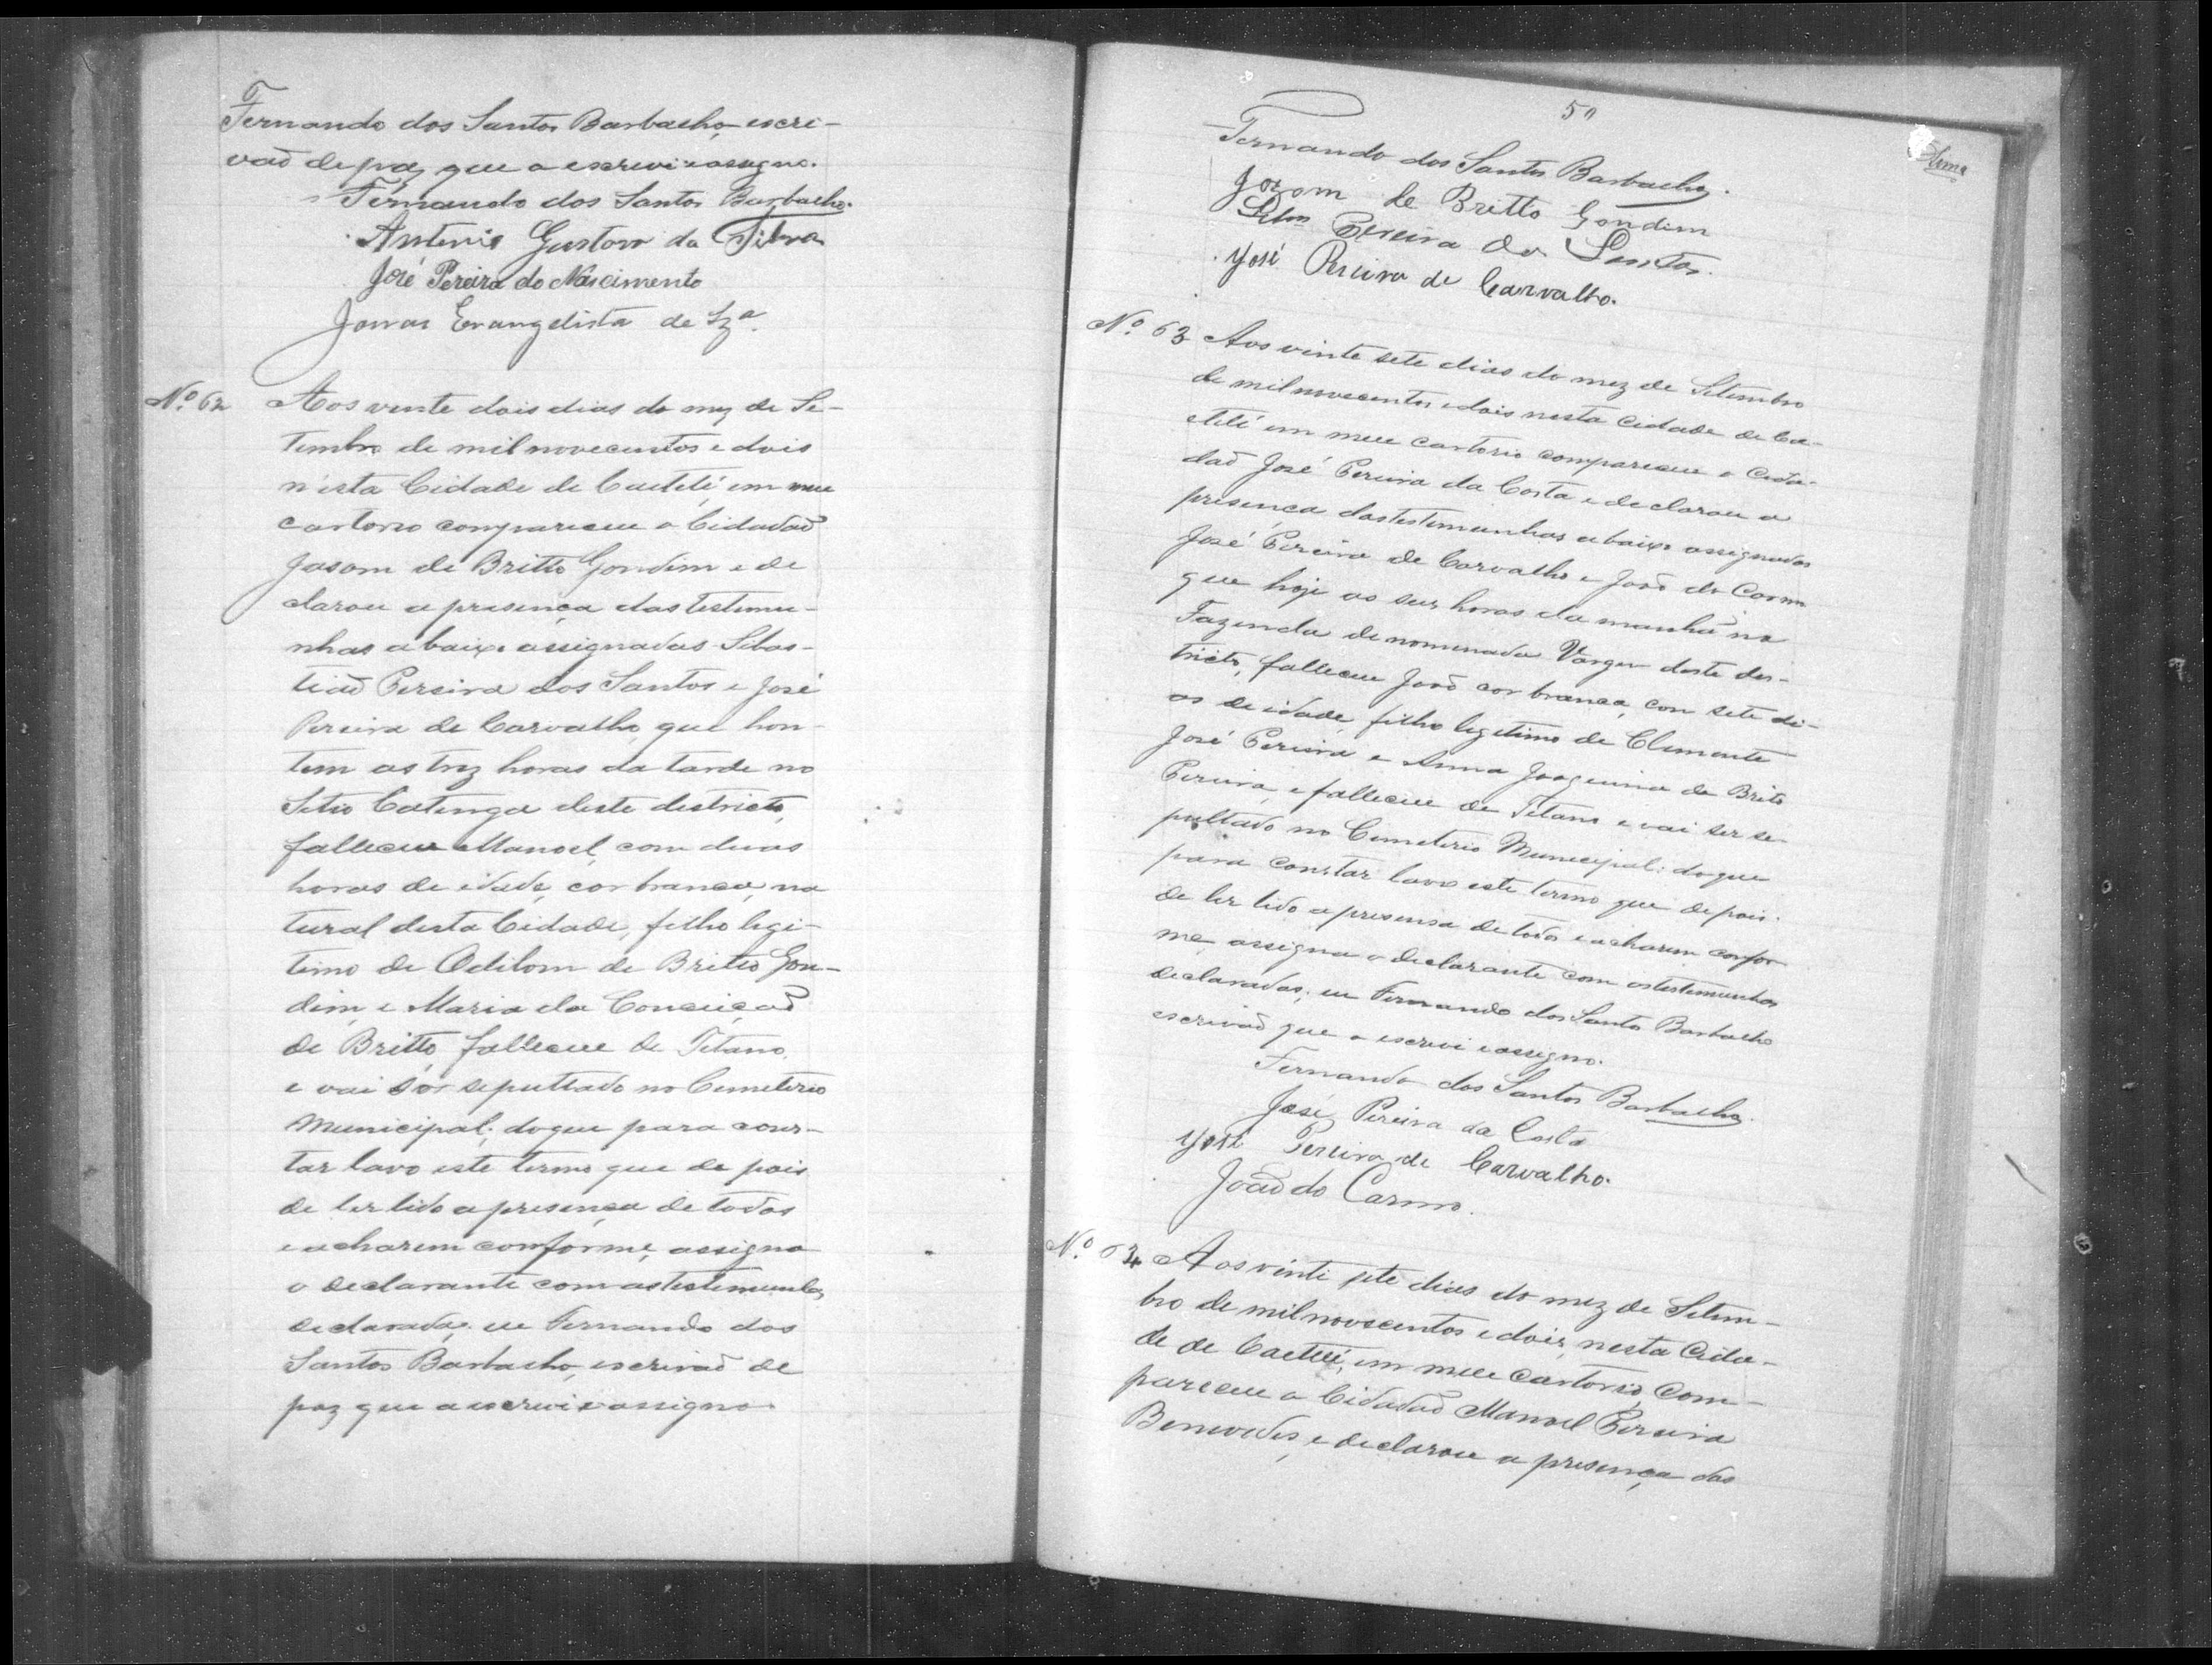 Fernando dos Santos Barbacho, escri-
vaõ de paz que o escrevi e assigno.
Fernando dos Santos Barbacho.
Antonio Gustavo da Silva
José Pereira do Nascimento
Jonas Evangelista de Sza.
Nº 62 Aos vente dois dias do mez de Se-
tembro de mil novecentos e dois
n'esta Cidade de Caeteté, em meu
cartorio compareceu o Cidadaõ
Jasom de Britto Gondim e de
clarou a presença das testemu-
nhas abaixo assignadas Sebas-
tiaõ Pereira dos Santos e José
Pereira de Carvalho, que hon-
tem as trez horas da tarde no
Sitio Catinga deste districto,
falleceu Manoel, com duas
horas de idade, cor branca, na
tural desta Cidade, filho legi-
timo de Odilom de Britto Gon-
dim, e Maria da Conceiçaõ
de Britto, falleceu de Tetano,
e vai ser sepultado no Cemeterio
Municipal; do que para cons-
tar lavo este termo que de pois
de ler lido a presença de todos
e acharem conforme, assigna
o declarante com as testemunhas
declaradas; eu Fernando dos
Santos Barbacho, escrivaõ de
paz que a escrevi e assigno.
50
Fernando dos Santos Barbacho.
Jasom de Britto Gondim
Pereira dos Santos.
José Pereira de Carvalho.
Nº 63 Aos vinte sete dias do mez de Setembro
de mil novecentos e dois nesta Cidade de Ca-
eteté em meu cartorio compareceu o Cida-
daõ José Pereira da Costa e declarou a
presença das testemunhas abaixo assignadas
José Pereira de Carvalho e Joaõ do Carmo
que hoje as seis horas da manhã na
Fazenda denomenada Vargem deste des-
tricto, falleceu Joaõ cor branca, com sete di-
as de idade, filho legetimo de Clemente
José Pereira e Anna Joaquina de Brito
Pereira, e falleceu de Tetano e vai ser se-
pultado no Cemeterio Municipal; do que
para constar lavo este termo que depois
de ler lido a presensa de todos e acharem confor
me, assigna o declarante com as testemunhas
declaradas; eu Fernando dos Santos Barbacho
escrivaõ que o escrevi e assigno.
Fernando dos Santos Barbacho.
José Pereira da Costa
José Pereira de Carvalho.
Joaõ do Carmo.
Nº 64 Aos vinti sete dias do mez de Setem-
bro de mil novecentos e dois, nesta Cida-
de de Caeteté, em meu cartorio, com-
pareceu o Cidadaõ Manoel Pereira
Benevedes, e declarou a presença das